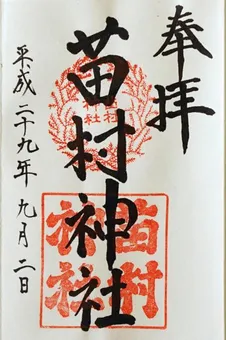 奉拝
苗村神社
平成二十九年九月二日
苗村
神社
苗村
神社